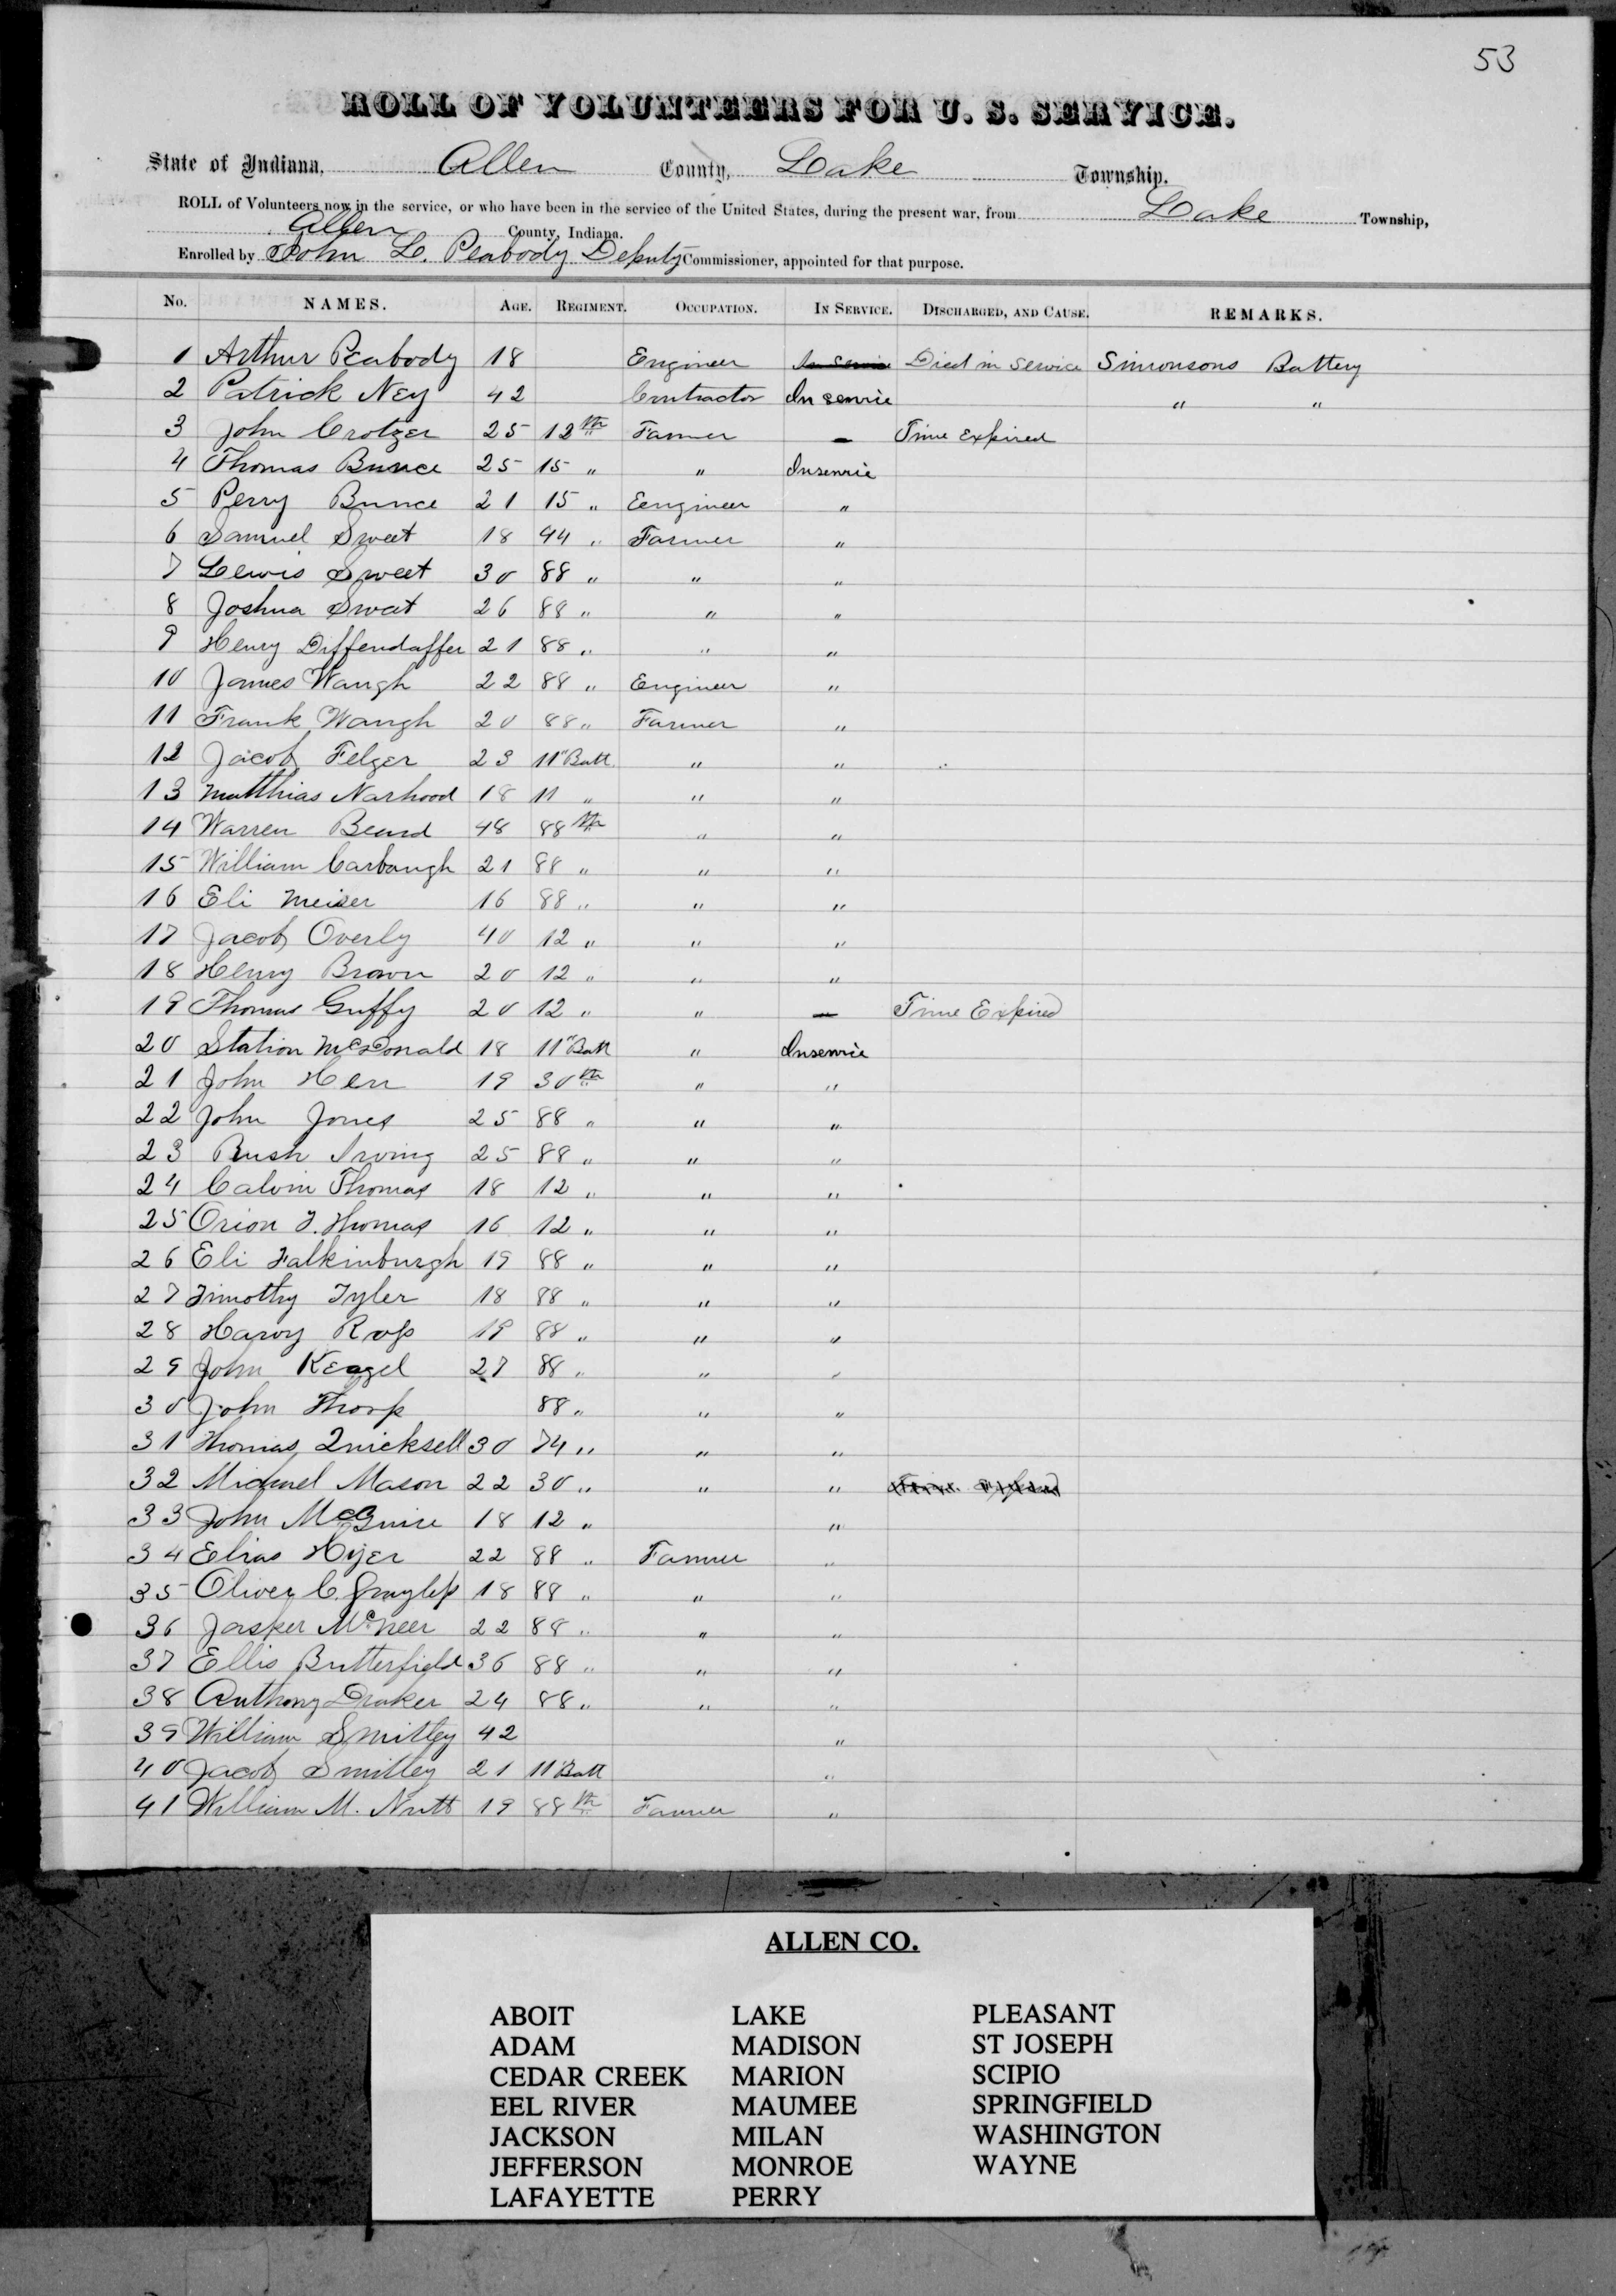 53
ROLL OF VOLUNTEERS FOR U. S. SERVICE.
State of Indiana, Allen County, Lake Township.
ROLL of Volunteers now in the service, or who have been in the service of the United States, during the present war, from Lake Township,
Allen County, Indiana.
Enrolled by John L. Peabody Deputy Commissioner, appointed for that purpose.
No. NAMES. AGE. REGIMENT. OCCUPATION. IN SERVICE. DISCHARGED, AND CAUSE. REMARKS.
1 Arthur Peabody 18 Engineer In Service Died in Service Simonsons Battery
2 Patrick Ney 42 Contractor In Service " "
3 John Crotzer 25 12th Farmer - Time Expired
4 Thomas Bunce 25 15 " " In service
5 Perry Bunce 21 15 " Eengineer "
6 Samuel Sweet 18 44 " Farmer "
7 Lewis Sweet 30 88 " " "
8 Joshua Sweet 26 88 " " "
9 Henry Diffendaffer 21 88 " " "
10 James Waugh 22 88 " Engineer "
11 Frank Waugh 20 88 " Farmer "
12 Jacob Felger 23 11" Batt " "
13 Matthias Narhood 18 11 " " "
14 Warren Beard 48 88th " "
15 William Carbaugh 21 88 " " "
16 Eli Meizer 16 88 " " "
17 Jacob Overly 40 12 " " "
18 Henry Brown 20 12 " " "
19 Thomas Guffy 20 12 " " - Time Expired
20 Station McDonald 18 11" Batt " In service
21 John Herr 19 30th " "
22 John Jones 25 88 " " "
23 Rush Irving 25 88 " " "
24 Calvin Thomas 18 12 " " "
25 Orion T. Thomas 16 12 " " "
26 Eli Falkinburgh 19 88 " " "
27 Timothy Tyler 18 88 " " "
28 Harvy Ross 19 88 " " "
29 John Keagel 27 88 " " "
30 John Thorp 88 " " "
31 Thomas Quicksell 30 74 " " "
32 Michael Mason 22 30 " " " Time Expired
33 John McGuire 18 12 " "
34 Elias Hyer 22 88 " Farmer "
35 Oliver C. 18 88 " " "
36 Jasper McNeer 22 88 " " "
37 Ellis Butterfield 36 88 " " "
38 Anthony Draker 24 88 " " "
39 William Smitley 42 "
40 Jacob Smitley 21 11" Batt "
41 William M. Nutt 19 88th Farmer "
ALLEN CO.
ABOIT LAKE PLEASANT
ADAM MADISON ST JOSEPH
CEDAR CREEK MARION SCIPIO
EEL RIVER MAUMEE SPRINGFIELD
JACKSON MILAN WASHINGTON
JEFFERSON MONROE WAYNE
LAFAYETTE PERRY